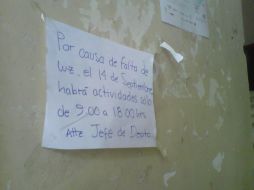 Por causa de falta de
luz, el 14 de Septiembre
habrá actividades solo
de 9:00 a 18:00 hrs
Atte Jefe de Depto